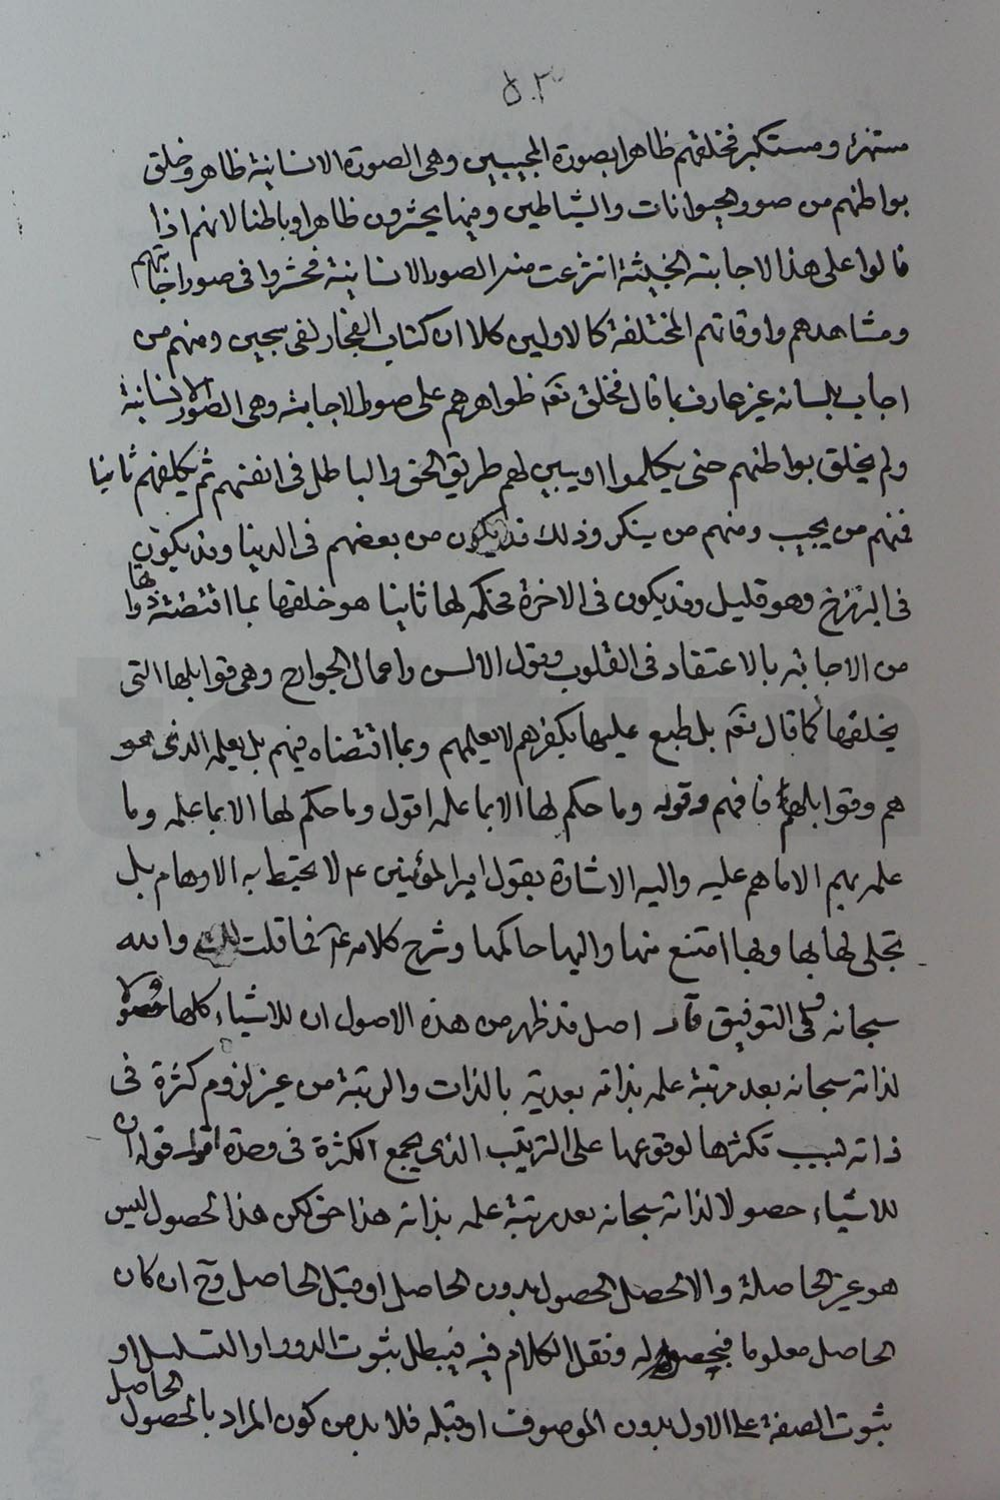 ٥٠٣
مستهزئ ومستكبر فخلقهم ظاهرا بصورة المجيبين وهى الصورة الانسانية ظاهر وخلق
بواطنهم من صور الحيوانات والشياطين ومنها يحشرون ظاهرا وباطنا لانهم اذا
ماتوا على هذا الاجابة الخبيثة انتزعت منهم الصور الانسانية فحشروا فى صور اجاباتهم
ومشاهدهم واوقاتهم المختلفة كالاولين كلا ان كتاب الفجار لفى سجين ومنهم من
اجاب بلسانه غير عارف بما قال فخلق تع ظواهرهم على صورة الاجابة وهى الصورة الانسانية
ولم يخلق بواطنهم حتى يكلموا او يبين لهم طريق الحق والباطل فى انفسهم ثم يكلفهم ثانيا
فمنهم من يجيب ومنهم من ينكر وذلك قد يكون من بعضهم فى الدنيا وقد يكون
فى البرزخ وهو قليل وقد يكون فى الاخرة فحكمه لها ثانيا هو خلقها بما اقتضته ذواتها
من الاجابة بالاعتقاد فى القلوب وقول الالسن واعمال الجوارح وهى قوابلها التى
يخلقها كما قال تع بل طبع عليها بكفرهم لا بعلمهم وبما اقتضاه فيهم بل بعلمه الذى هو
هم وقوابلهم فافهم وقوله وما حكم لها الا بما علمه اقول وما حكم لها الا بما علمه وما
علمه بهم الا ما هم عليه واليه الاشارة بقول امير المؤمنين ع لا تحيط به الاوهام بل
تجلى لها بها وبها امتنع منها واليها حاكمها وشرح كلامه ع كما قلت لك والله
سبحانه ولى التوفيق قال اصل قد ظهر من هذه الاصول ان للاشياء كلها حصولا
لذاته سبحانه بعد مرتبة علمه بذاته بعدية بالذات والرتبة من غير لزوم كثرة فى
ذاته بسبب تكثرها لوقوعها على الترتيب الذى يجمع الكثرة فى وحدة اقول قوله ان
للاشياء حصولا لذاته سبحانه بعد مرتبة علمه بذاته هذا حق لكن هذا الحصول ليس
هو غير الحاصلة والا لحصل الحصول بدون الحاصل او قبل الحاصل وح ان كان
الحاصل معلوما فبحصوله وننقل الكلام فيه فيبطل بثبوت الدور او التسلسل او
بثبوت الصفة على الاول بدون الموصوف او قبله فلا بد من كون المراد بالحصول الحاصل